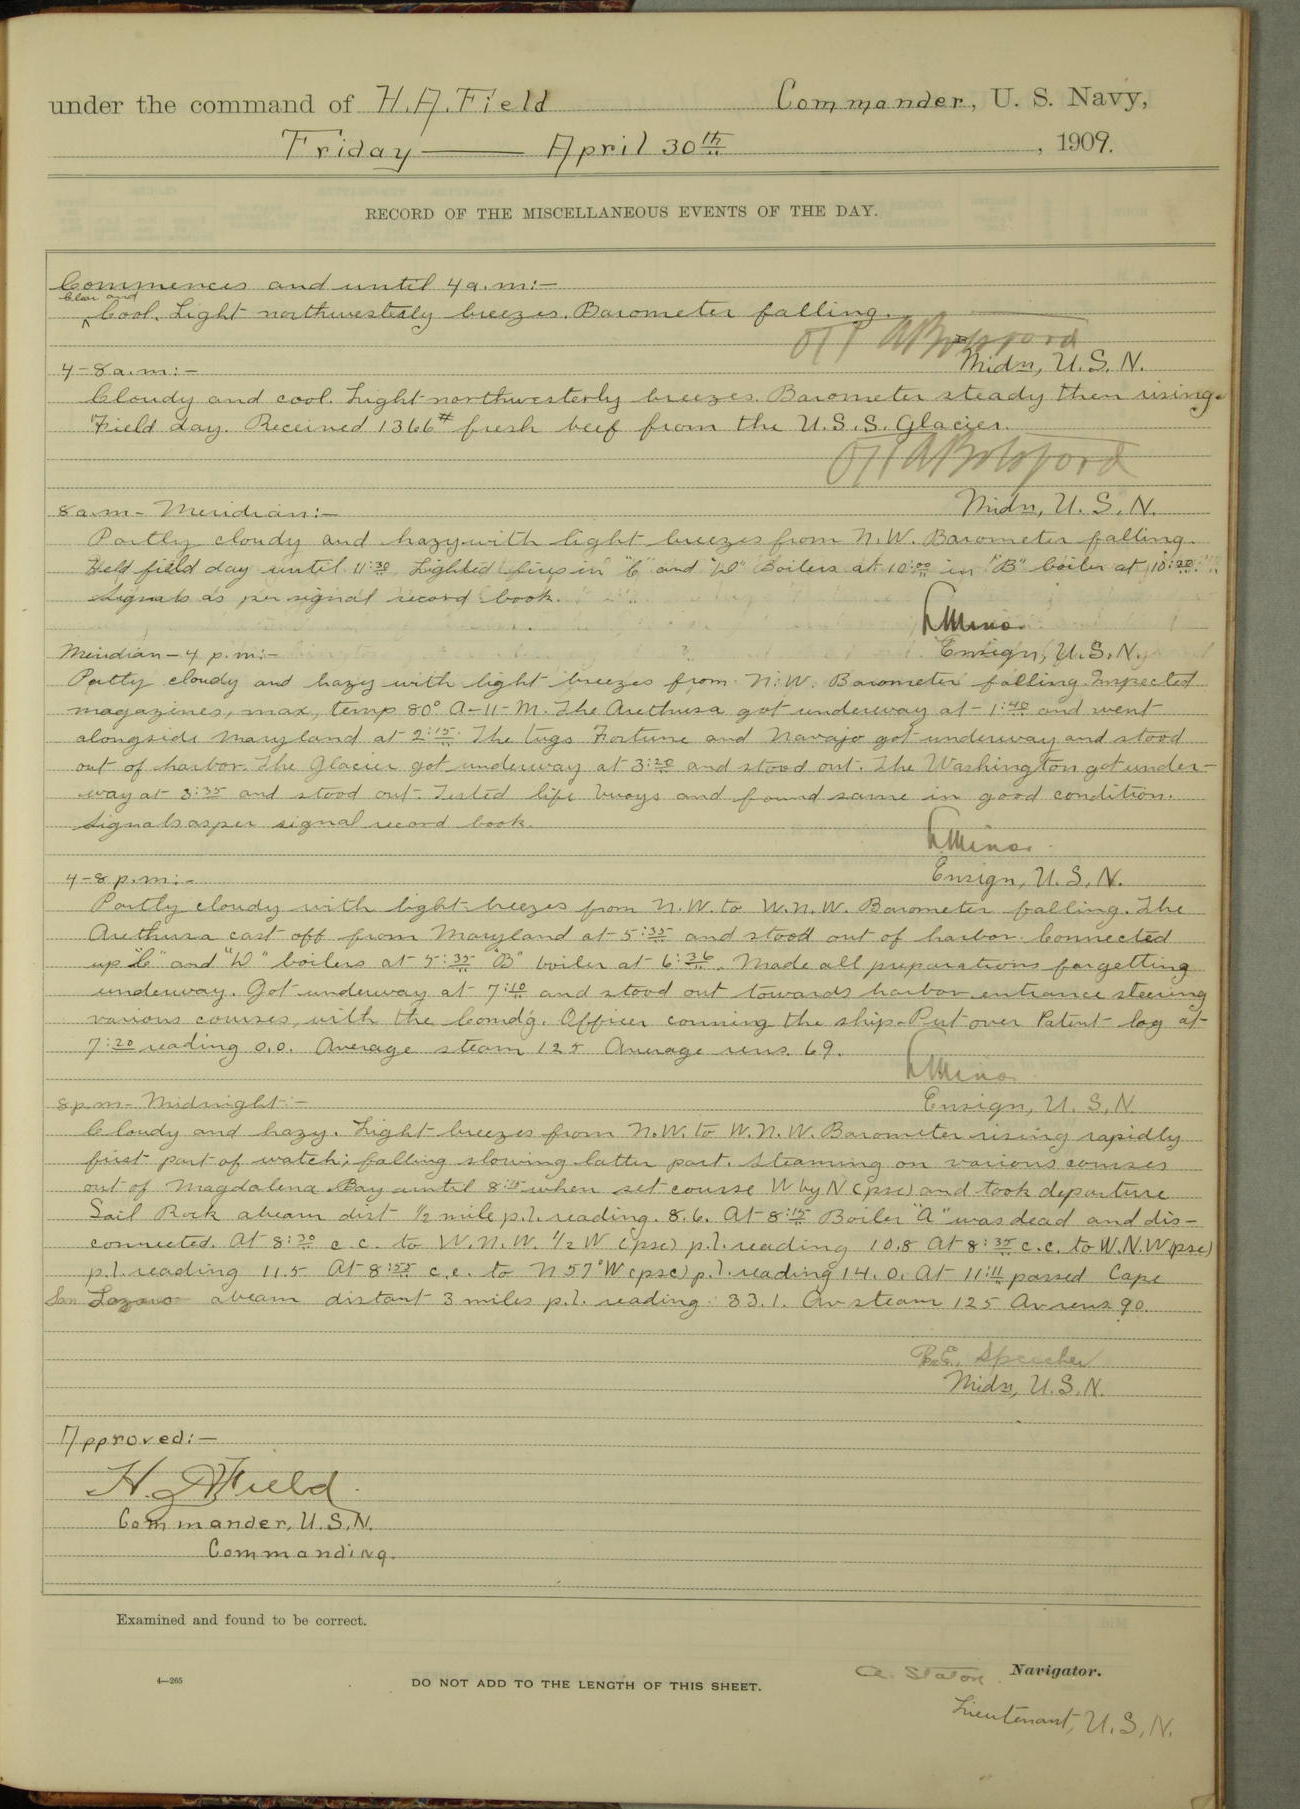 under the command of H.A.Field Commander, U. S. Navy,
Friday — April 30th, 1909.
RECORD OF THE MISCELLANEOUS EVENTS OF THE DAY.
Commences and until 4 a.m:-
Clear and
^ Cool. Light northwesterly breezes. Barometer falling.
Midn, U.S.N.
4-8 a.m:-
Cloudy and cool. Light northwesterly breezes. Barometer steady then rising.
Field day. Received 1366# fresh beef from the U.S.S. Glacier.
Midn, U.S.N.
8 a.m- Meridian:-
Partly cloudy and hazy with light breezes from N.W. Barometer falling.
Held field day until 11:30 Lighted fires in "C" and "D" Boilers at 10:00 in "B" boiler at 10:20.
Signals as per signal record book.
Ensign, U.S.N.
Meridian-4 p.m:-
Partly cloudy and hazy with light breezes from N.W. Barometer falling. Inspected
magazines, max, temp 80° A-11-M. The Arethusa got underway at 1:40 and went
alongside Maryland at 2:15. The tugs Fortune and Navajo got underway and stood
out of harbor. The Glacier got underway at 3:20 and stood out. The Washington got under-
way at 3:35 and stood out. Tested life buoys and found same in good condition.
Signals as per signal record book.
Ensign, U.S.N.
4-8 p.m:-
Partly cloudy with light breezes from N.W. to W.N.W. Barometer falling. The
Arethusa cast off from Maryland at 5:35 and stood out of harbor. Connected
up "C" and "D" boilers at 5:35 "B" boiler at 6:36. Made all preparations for getting
underway. Got underway at 7:10 and stood out towards harbor entrance steering
various courses, with the Comd'g. Officer conning the ship. Put over Patent log at
7:20 reading 0.0. Average steam 125 Average revs. 69.
Ensign, U.S.N
8 p.m- Midnight:-
Cloudy and hazy. Light breezes from N.W. to W.N.W. Barometer rising rapidly
first part of watch; falling slowing latter part. Steaming on various courses
out of Magdalena Bay until 8:15 when set course W by N (psc) and took departure
Sail Rock abeam dist 1/2 mile p.l. reading. 8.6. At 8:15 Boiler "A" was dead and dis-
connected. At 8:30 c.c. to W.N.W. 1/2 W (psc) p.l. reading 10.8 At 8:35 c.c. to W.N.W (psc)
p.l. reading 11.5 At 8:55 c.c. to N 57° W (psc) p.l. reading 14.0. At 11:11 passed Cape
San Lazaro abeam distant 3 miles p.l. reading 33.1. Av steam 125 Av revs 90.
Midn, U.S.N.
Approved:-
H. A. Field.
Commander, U.S.N.
Commanding.
Examined and found to be correct.
A. Staton Navigator.
4—265 DO NOT ADD TO THE LENGTH OF THIS SHEET.
Lieutenant, U.S.N.